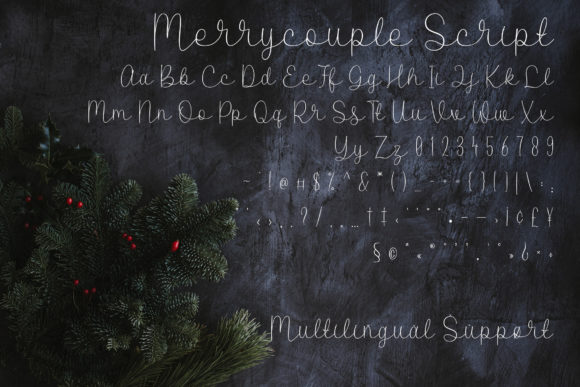 Merrycouple Script
Aa Bb Cc Dd Ee Ff Gg Hh Ii Jj Kk Ll
Mm Nn Oo Pp Qq Rr Ss Tt Uu Vv Ww Xx
Yy Zz 0 1 2 3 4 5 6 7 8 9
~ ` ! @ # $ % ^ & * ( ) _ - + = { } [ ] | \ : ;
" ' < > , . ? /
† ‡
› ¡ ¢ £ ¥
§ © ª « ® ¯
Multilingual Support